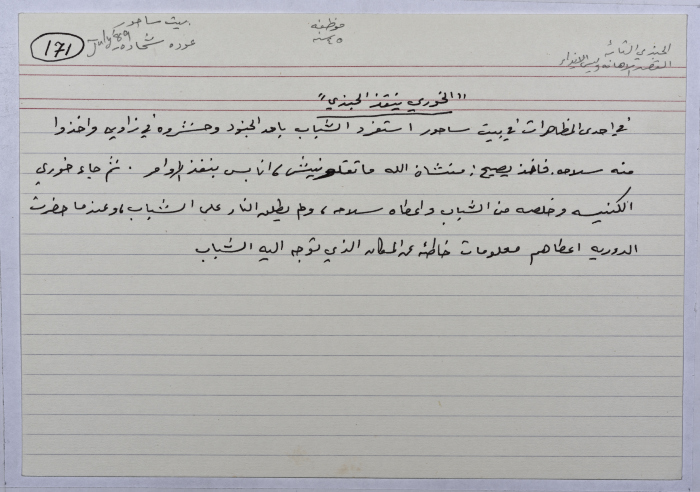 بيت ساحور
عوده شحاده July 89
171
موظفه
٤٥ سنه
الجندي التائه
القصد الاهانه وليس الايذاء
"الخوري ينقذ الجندي"
في احدى المظاهرات في بيت ساحور استفرد الشباب باحد الجنود وحشروه في زاويه واخذوا
منه سلاحه. فاخذ يصيح: منشاة الله ما تقتلونيش، انا بس بنفذ اوامر. ثم جاء خوري
الكنيسه وخلصه من الشباب واعطاه سلاحه، ولم يطلق النار على الشباب، وعندما حضرت
الدوريه اعطاهم معلومات خاطئه عن المكان الذي توجه اليه الشباب